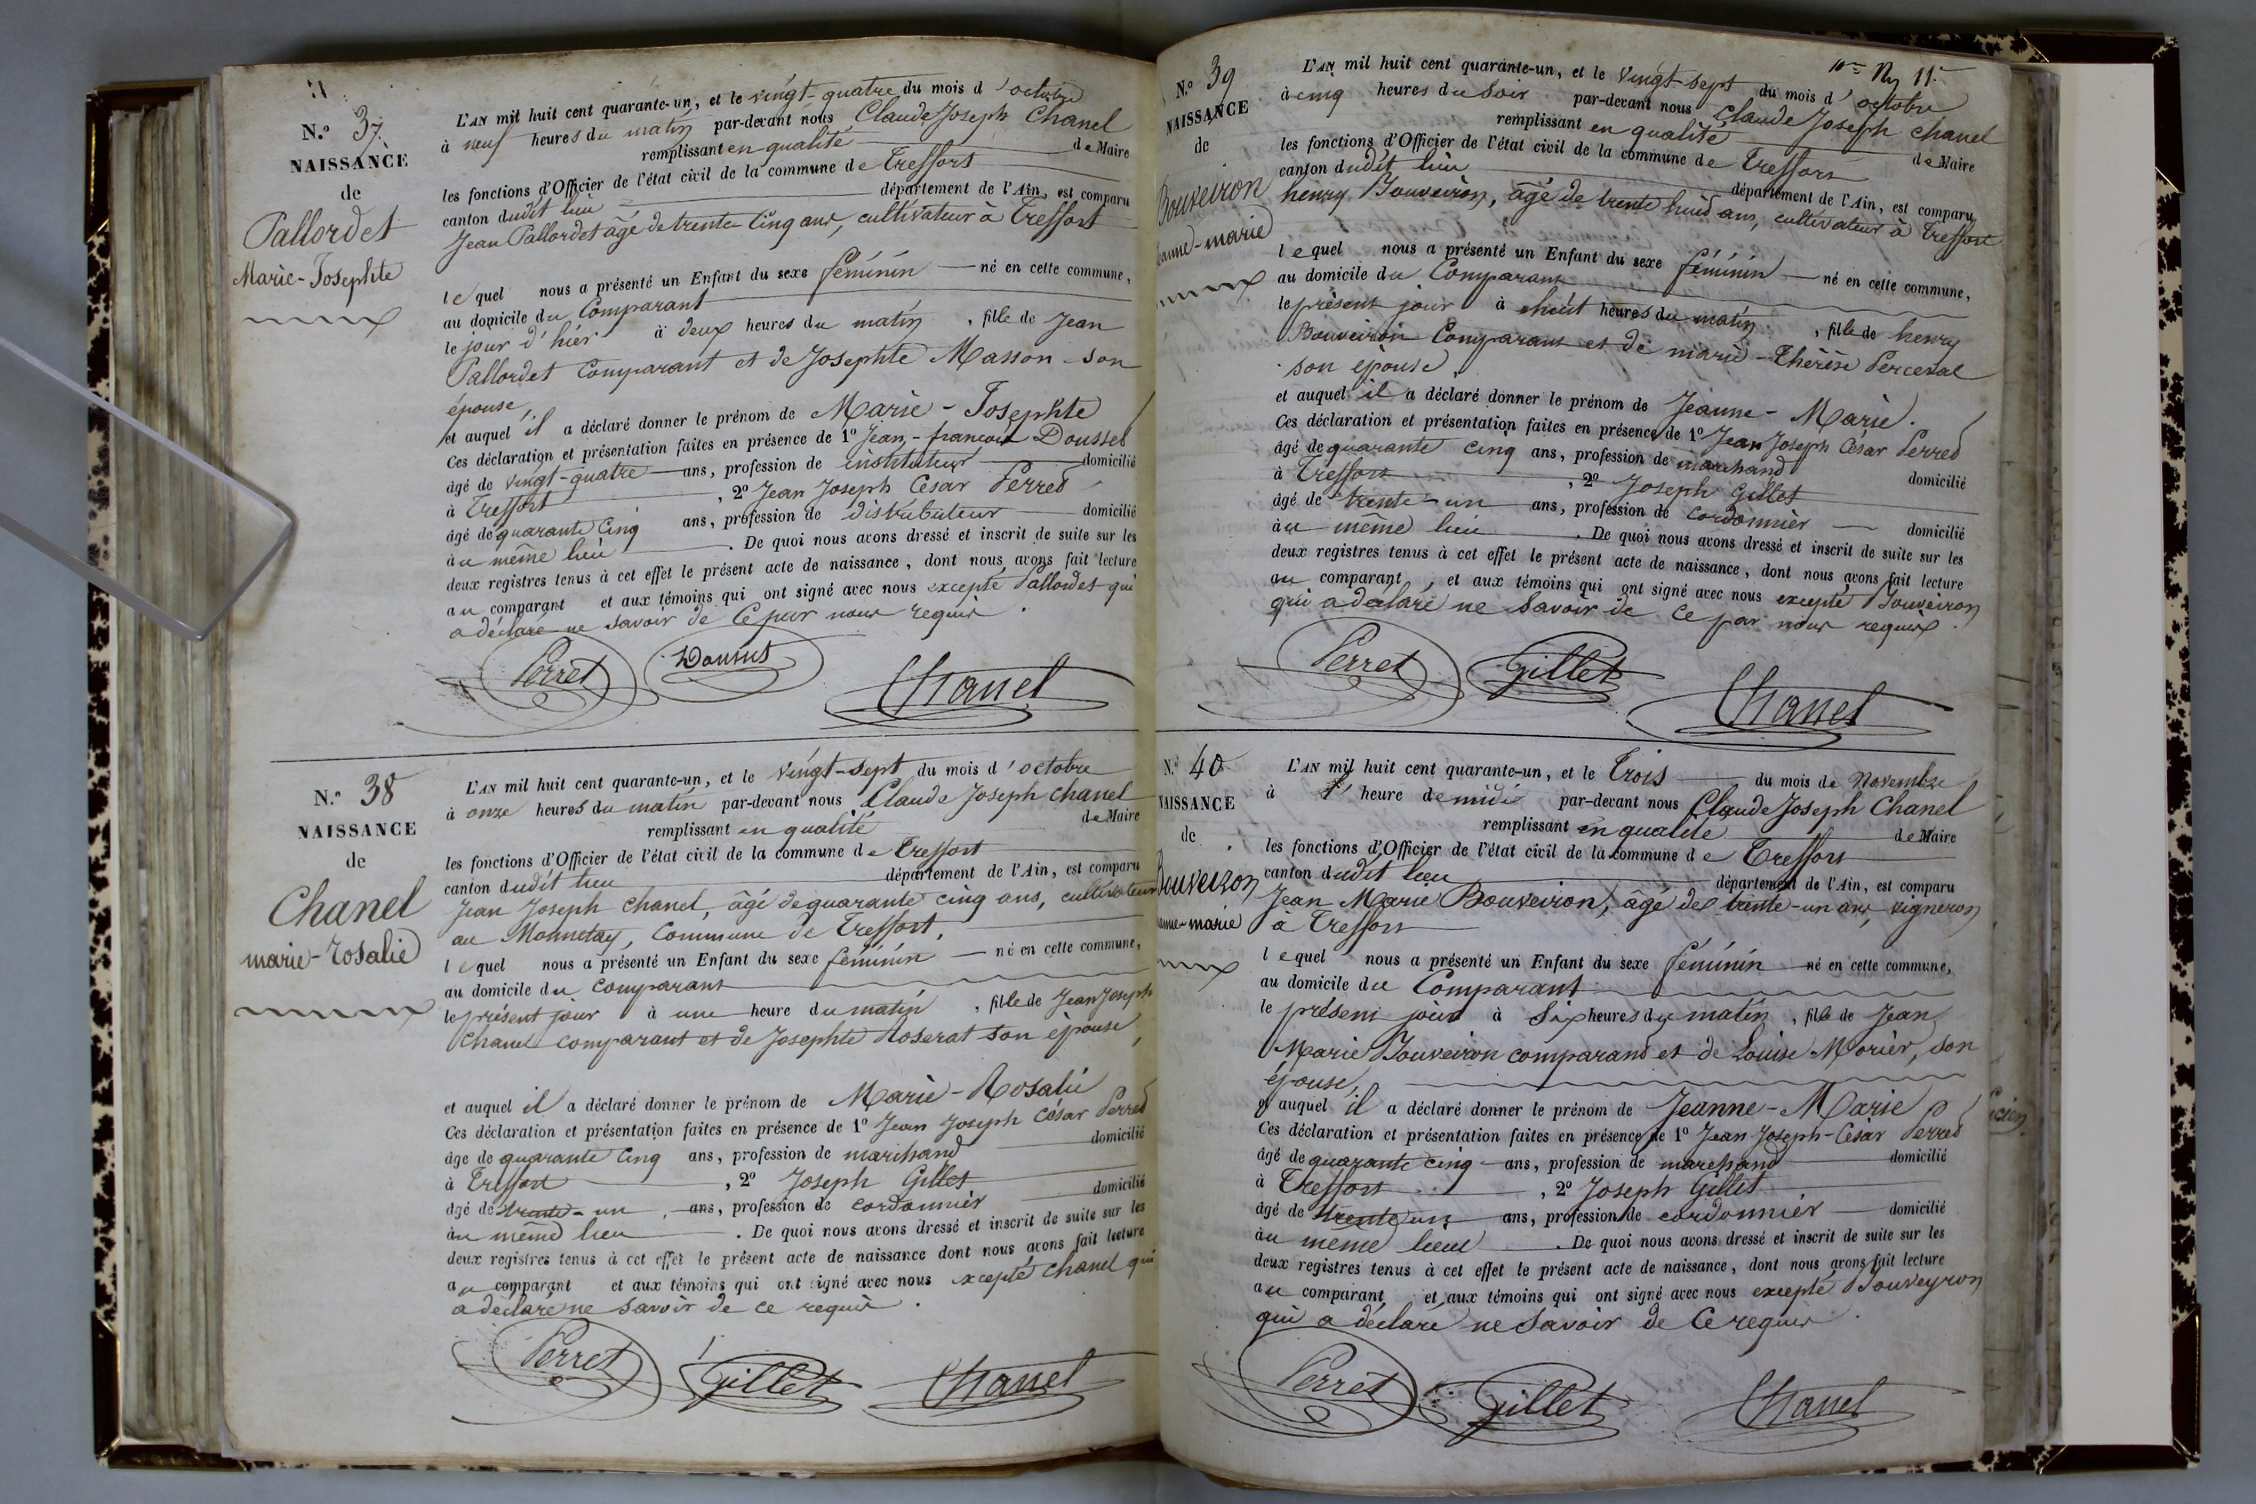 N.º 37.
NAISSANCE
de
Pallordet
Marie-Josephte
L'AN mil huit cent quarante-un, et le vingt-quatre du mois d'octobre
à neuf heures du matin par-devant nous Claude Joseph Chanel
remplissant en qualité de Maire
les fonctions d'Officier de l'état civil de la commune de Treffort
canton dudit lieu département de l'Ain, est comparu
Jean Pallordet âgé de trente cinq ans, cultivateur à Treffort
lequel nous a présenté un Enfant du sexe féminin né en cette commune,
au domicile du Comparant
le jour d'hier à deux heures du matin, fille de Jean
Pallordet Comparant et de Josephte Masson son
épouse,
et auquel il a déclaré donner le prénom de Marie-Josephte
Ces déclaration et présentation faites en présence de 1º Jean-françois Dousset
âgé de vingt-quatre ans, profession de instituteur domicilié
à Treffort, 2º Jean Joseph César Perret
âgé de quarante Cinq ans, profession de distributeur domicilié
au même lieu. De quoi nous avons dressé et inscrit de suite sur les
deux registres tenus à cet effet le présent acte de naissance, dont nous avons fait lecture
au comparant et aux témoins qui ont signé avec nous excepté Pallordet qui
a déclaré ne savoir de Ce par nous requis.
Perret Chanel
N.º 38
NAISSANCE
de
Chanel
marie-rosalie
L'AN mil huit cent quarante-un, et le vingt-sept du mois d'octobre
à onze heures du matin par-devant nous Claude Joseph Chanel
remplissant en qualité de Maire
les fonctions d'Officier de l'état civil de la commune de Treffort
canton dudit lieu département de l'Ain, est comparu
Jean Joseph Chanel, âgé de quarante cinq ans, cultivateur
au Monnetay, Commune de Treffort,
lequel nous a présenté un Enfant du sexe féminin né en cette commune,
au domicile du comparant
le présent jour à une heure du matin, fille de Jean Joseph
Chanel comparant et de Josephte Roserat son épouse,
et auquel il a déclaré donner le prénom de Marie-Rosalie
Ces déclaration et présentation faites en présence de 1º Jean Joseph César Perret
âge de quarante Cinq ans, profession de marchand domicilié
à Treffort, 2º Joseph Gillet
âgé de trente-un ans, profession de cordonnier domicilié
au même lieu. De quoi nous avons dressé et inscrit de suite sur les
deux registres tenus à cet effet le présent acte de naissance dont nous avons fait lecture
au comparant et aux témoins qui ont signé avec nous excepté Chanel qui
a déclaré ne savoir de ce requis.
Perret Gillet Chanel
11.
N.º 39
NAISSANCE
de
Bouveiron
Jeanne-marie
L'AN mil huit cent quarante-un, et le vingt-sept du mois d'octobre
à cinq heures du Soir par-devant nous Claude Joseph Chanel
remplissant en qualité de Maire
les fonctions d'Officier de l'état civil de la commune de Treffort
canton dudit lieu département de l'Ain, est comparu
henry Bouveiron, âgé de trente huit ans, cultivateur à Treffort
lequel nous a présenté un Enfant du sexe féminin né en cette commune,
au domicile du Comparant
le présent jour à huit heures du matin, fille de henry
Bouveiron Comparant et de marie-Thérèse Perceval
son épouse,
et auquel il a déclaré donner le prénom de Jeanne-Marie.
Ces déclaration et présentation faites en présence de 1º Jean Joseph César Perret
âgé de quarante cinq ans, profession de marchand domicilié
à Treffort, 2º Joseph Gillet
âgé de trente-un ans, profession de cordonnier domicilié
au même lieu. De quoi nous avons dressé et inscrit de suite sur les
deux registres tenus à cet effet le présent acte de naissance, dont nous avons fait lecture
au comparant, et aux témoins qui ont signé avec nous excepté Bouveiron
qui a déclaré ne Savoir de Ce par nous requis.
Perret Gillet Chanel
N.º 40
NAISSANCE
de
Bouveiron
Jeanne-marie
L'AN mil huit cent quarante-un, et le trois du mois de Novembre
à heure de midi par-devant nous Claude Joseph Chanel
remplissant en qualité de Maire
les fonctions d'Officier de l'état civil de la commune de Treffort
canton dudit lieu département de l'Ain, est comparu
Jean Marie Bouveiron, âgé de trente-un ans, vigneron
à Treffort
lequel nous a présenté un Enfant du sexe féminin né en cette commune,
au domicile du Comparant
le présent jour à Six heures du matin, fille de Jean
Marie Bouveiron comparant et de Louise Morier, son
épouse,
et auquel il a déclaré donner le prénom de Jeanne-Marie
Ces déclaration et présentation faites en présence de 1º Jean-Joseph-César Perret
âgé de quarante cinq ans, profession de marchand domicilié
à Treffort, 2º Joseph Gillet
âgé de trente un ans, profession de cordonnier domicilié
au même lieu. De quoi nous avons dressé et inscrit de suite sur les
deux registres tenus à cet effet le présent acte de naissance, dont nous avons fait lecture
au comparant et aux témoins qui ont signé avec nous excepté Bouveyron
qui a déclaré ne Savoir de Ce requis.
Perret Gillet Chanel